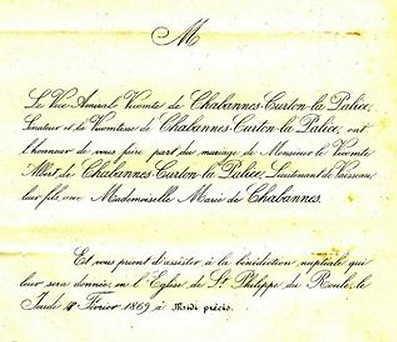 M
Le Vice-Amiral Vicomte de Chabannes-Curton-la Palice,
Sénateur et la Vicomtesse de Chabannes-Curton-la Palice, ont
l'honneur de vous faire part du mariage de Monsieur le Vicomte
Albert de Chabannes-Curton-la Palice, Lieutenant de Vaisseau,
leur fils, avec Mademoiselle Marie de Chabannes.
Et vous prient d'assister à la bénédiction nuptiale qui
leur sera donnée, en l'Eglise de St. Philippe du Roule, le
Jeudi Février 1869 à Midi précis.